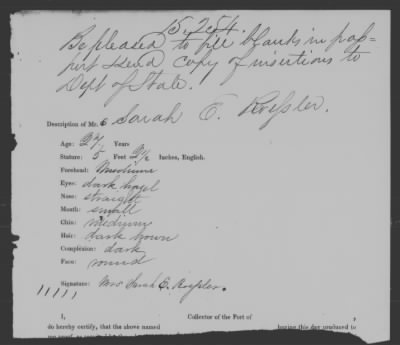 15,254.
Be pleased to fill blanks in pass=
port & send copy of insertions to
Dept of State.
Description of Mrs Sarah E. Roessler.
Age: 27, Years
Stature: 5 Feet 2½ Inches, English.
Forehead: Medium
Eyes: dark hazel
Nose: straight
Mouth: small
Chin: medium
Hair: dark brown
Complexion: dark
Face: round
Signature: Mrs Sarah E. Roessler.
I, Collector of the Port of
do hereby certify, that the above named having this day produced to